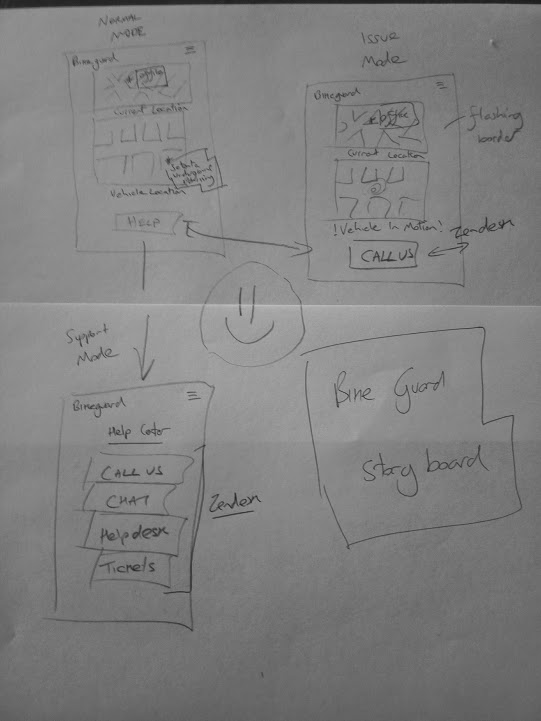 NORMAL
MODE
Bineguard
Current Location
Vehicle Location
HELP
Issue
Mode
Bineguard
Current Location
flashing
border
! Vehicle In Motion !
CALL US
Zendesk
Support
Mode
Bineguard
Help Center
CALL US
CHAT
Helpdesk
Tickets
Zendesk
Bine Guard
Story board